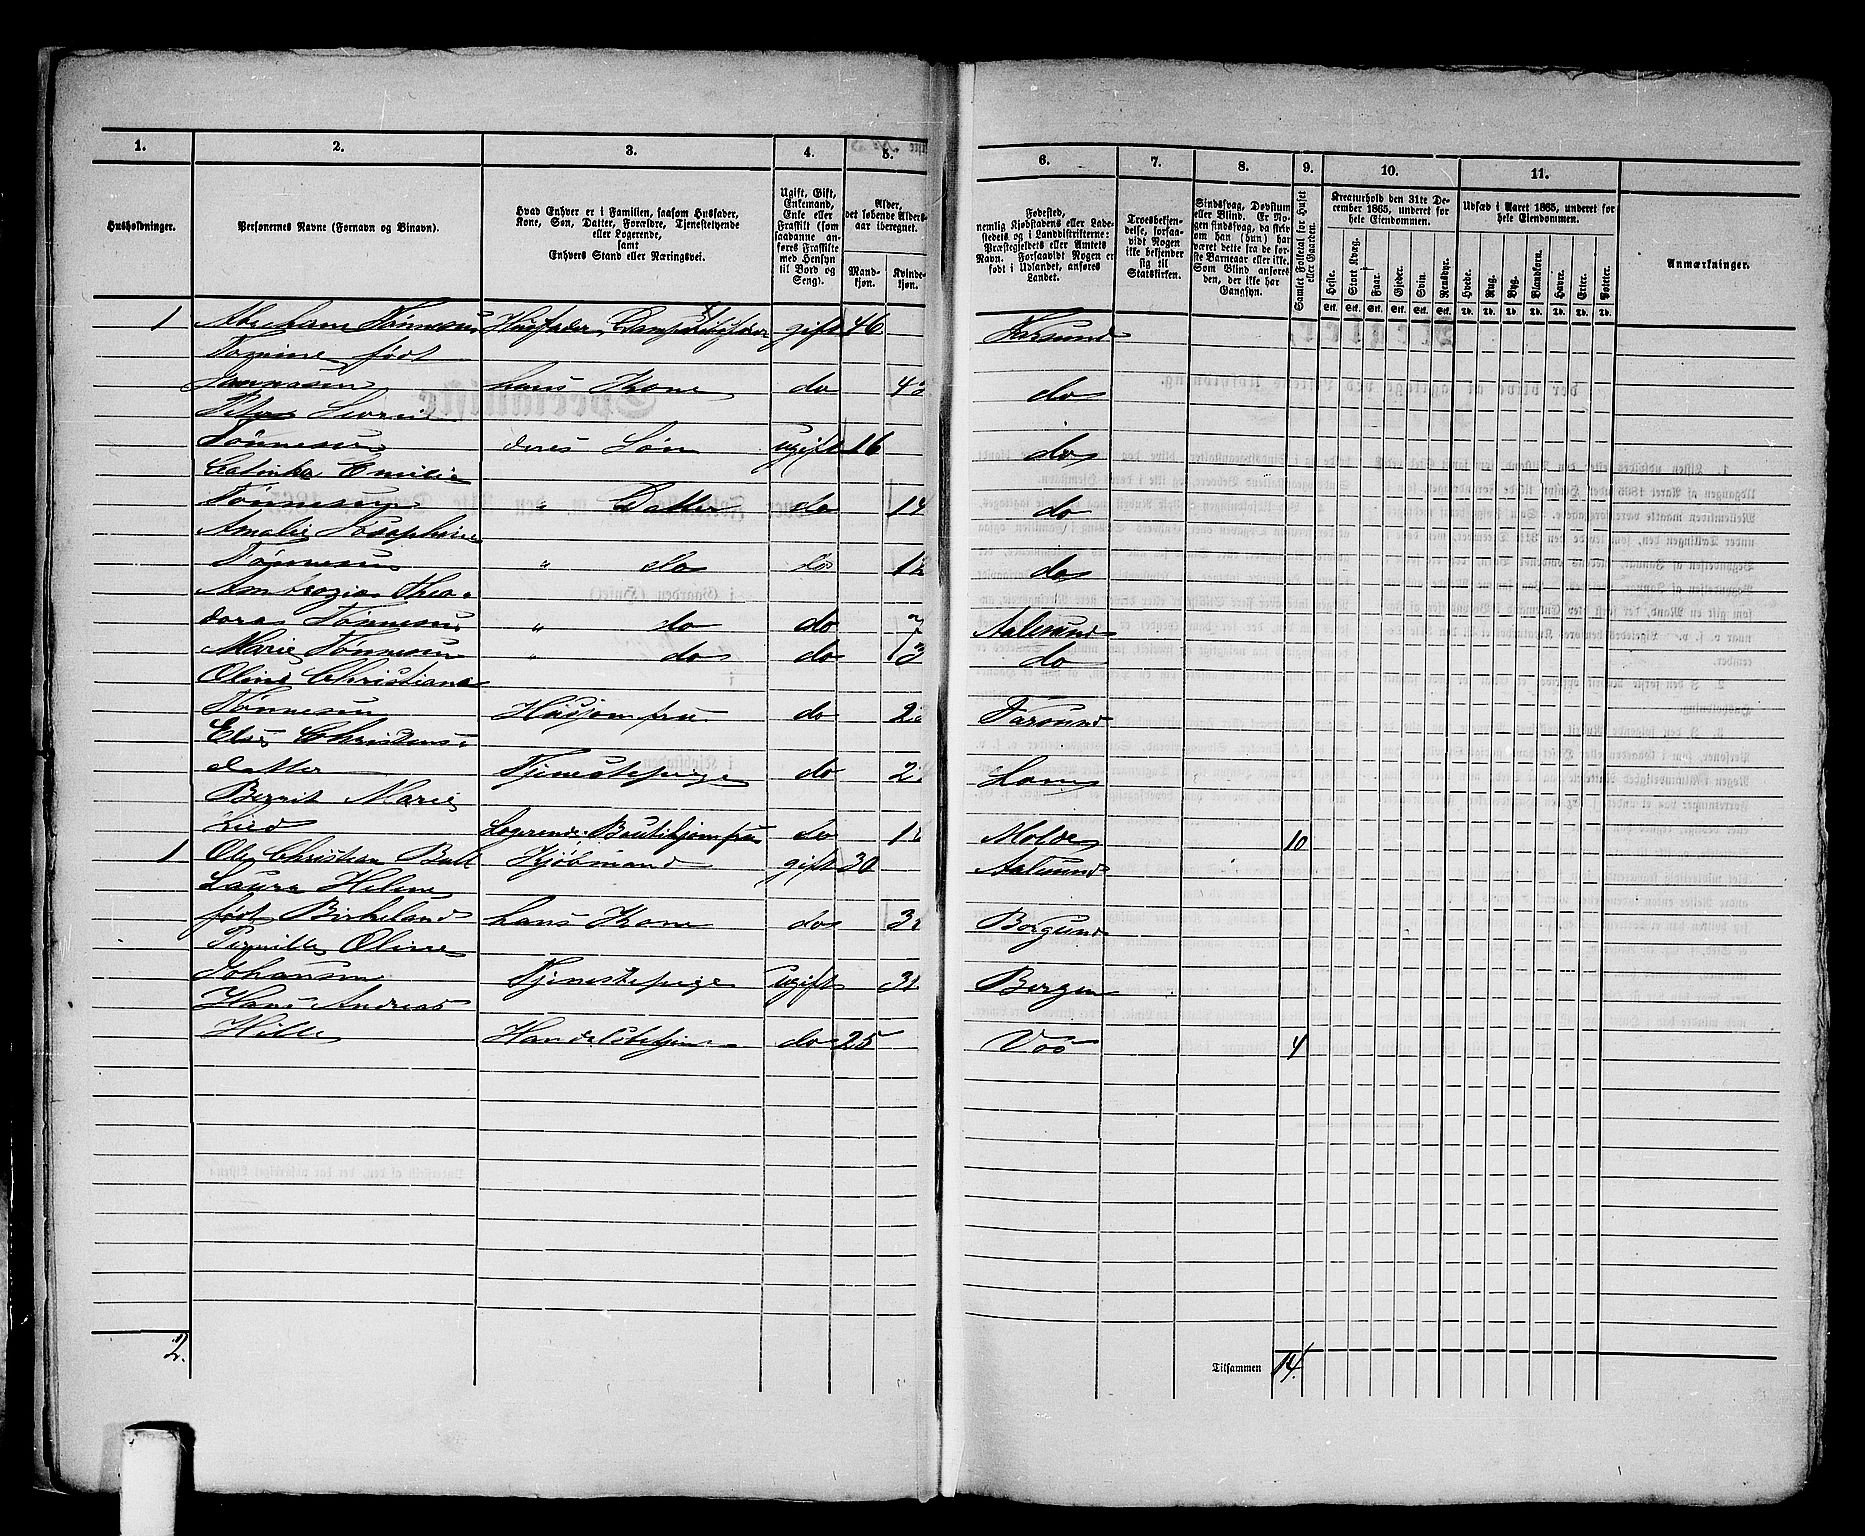 1. 2. 3. 4. 5. 6. 7. 8. 9. 10. 11.
Husholdninger.
Personernes Navne (Fornavn og Binavn).
Hvad Enhver er i Familien, saasom Husfader,
Kone, Søn, Datter, Forældre, Tjenestetyende
eller Logerende,
samt
Enhvers Stand eller Næringsvei.
Ugift, Gift,
Enkemand,
Enke eller
Fraskilt (som
saadanne an-
føres Fraskilte
med Hensyn
til Bord og
Seng).
Alder,
det løbende Alders-
aar iberegnet.
Mand-
kjøn.
Kvinde-
kjøn.
Fødested,
nemlig Kjøbstadens eller Lade-
stedets og i Landdistrikterne:
Præstegjeldets eller Amtets
Navn. Forsaavidt Nogen er
født i Udlandet, anføres
Landet.
Troesbekjen-
delse, forsaa-
vidt Nogen
ikke bekjender
sig til
Statskirken.
Sindssvag, Døvstum
eller Blind. Er No-
gen sindssvag, da skriv
om han (hun) har
været dette fra de før-
ste Barneaar eller ikke.
Som Blind anføres
den, der ikke har
Gangsyn.
Samlet Folketal for Huset
eller Gaarden.
Kreaturhold den 31te De-
cember 1865, underet for
hele Eiendommen.
Heste. Stort Kvæg. Faar. Gjeder. Svin. Rensdyr.
Stk. Stk. Stk. Stk. Stk. Stk.
Udsæd i Aaret 1865, underet for
hele Eiendommen.
Hvede. Rug. Byg. Blandkorn. Havre. Erter. Poteter.
Td. Td. Td. Td. Td. Td. Td.
Anmærkninger.
1 Abraham Tønnesen Husfader, Dampskibsfører gift 46 Farsund
født
hans Kone do do
Tønnesen deres Søn ugift 16 do
Catinka Emilie
Tønnesen " Datter do 14 do
Amalie Josephine
Tønnesen " do do 12 do
Ambrozia Theo-
dora Tønnesen " do do 7 Aalesund
Marie Tønnesen " do do 3 do
Oline Christiane
Tønnesen Husjomfru do Farsund
Else Christens-
datter Tjenestepige do
Bergit Marie
Lied Logerende. Boutikjomfru do Molde 10
1 Ole Christian Bull Kjøbmand gift 30 Aalesund
Laura Helene
født Birkeland hans Kone do Borgund
Pernille Oline
Johansen Tjenestepige ugift Bergen
Hans Andreas
Hille Handelsbetjent do 25 Vos 4
2.
Tilsammen 14.